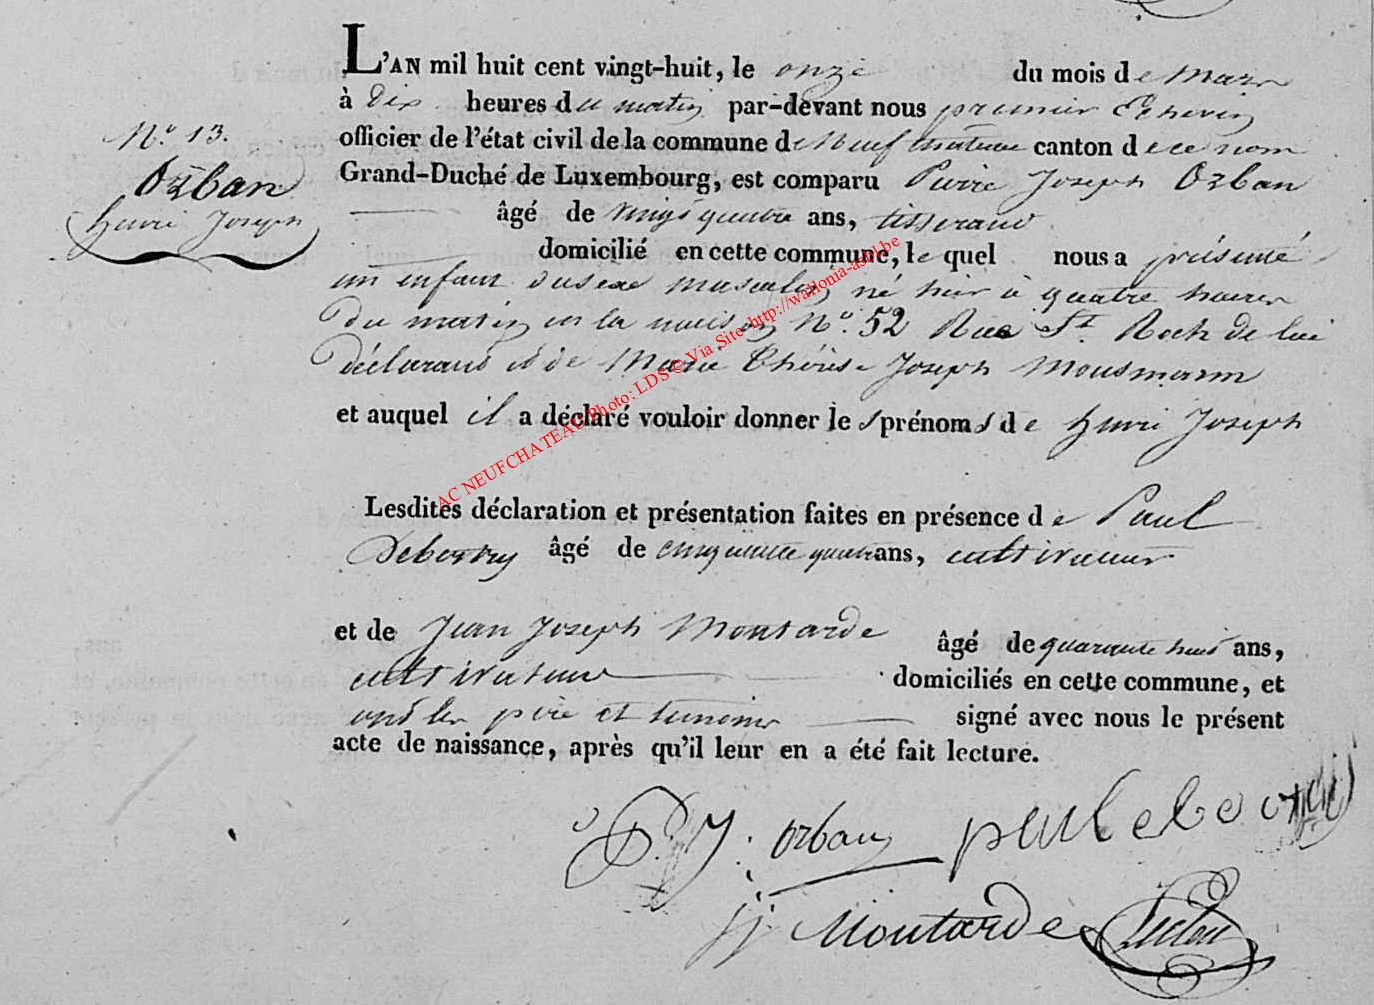 N.o 13.
Orban
henri Joseph
L'AN mil huit cent vingt-huit, le onze du mois de Mars
à Dix heures du matin par-devant nous premier Echevin
officier de l'état civil de la commune de Neufchateau canton de ce nom
Grand-Duché de Luxembourg, est comparu Pierre Joseph Orban
âgé de vingt quatre ans, tisserand
domicilié en cette commune, le quel nous a présenté
un enfant du sexe masculin, né hier à quatre heures
du matin en la maison N.o 52 Rue St. Roch de lui
déclarant et de Marie Thérèse Joseph Mousmann
et auquel il a déclaré vouloir donner les prénoms de henri Joseph
Lesdites déclaration et présentation faites en présence de Paul
âgé de cinquante quatre ans, cultivateur
et de Jean Joseph Moutarde âgé de quarante huit ans,
cultivateur domiciliés en cette commune, et
ont les père et temoins signé avec nous le présent
acte de naissance, après qu'il leur en a été fait lecture.
P. J: Orban
JJ Moutarde
AC NEUFCHATEAU Photo: LDS © Via Site http://wallonia-asbl.be